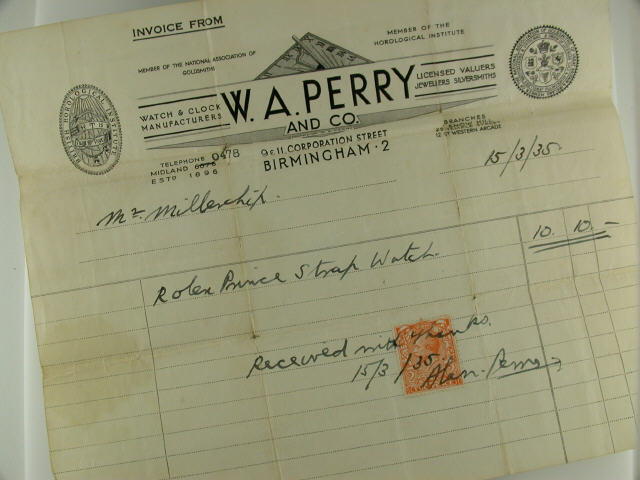 INVOICE FROM
MEMBER OF THE NATIONAL ASSOCIATION OF
GOLDSMITHS
MEMBER OF THE
HOROLOGICAL INSTITUTE
BRITISH HOROLOGICAL INSTITUTE
WATCH & CLOCK
MANUFACTURERS
W. A. PERRY
AND CO.
LICENSED VALUERS
JEWELLERS SILVERSMITHS
TELEPHONE
MIDLAND 0478
ESTD 1896
9 & 11, CORPORATION STREET
BIRMINGHAM · 2
BRANCHES
12 GT WESTERN ARCADE
15/3/35.
Mr. Millership.
Rolex Prince Strap Watch.
10. 10. -
Received with thanks.
15/3/35.
Alan. Perry